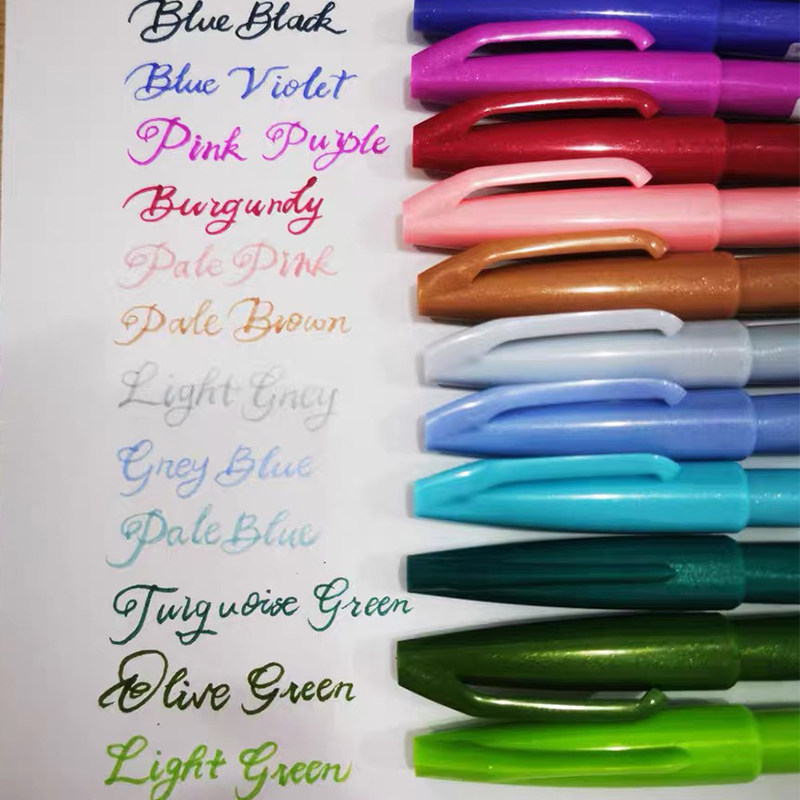 Blue Black
Blue Violet
Pink Purple
Burgundy
Pale Pink
Pale Brown
Light Grey
Grey Blue
Pale Blue
Turquoise Green
Olive Green
Light Green